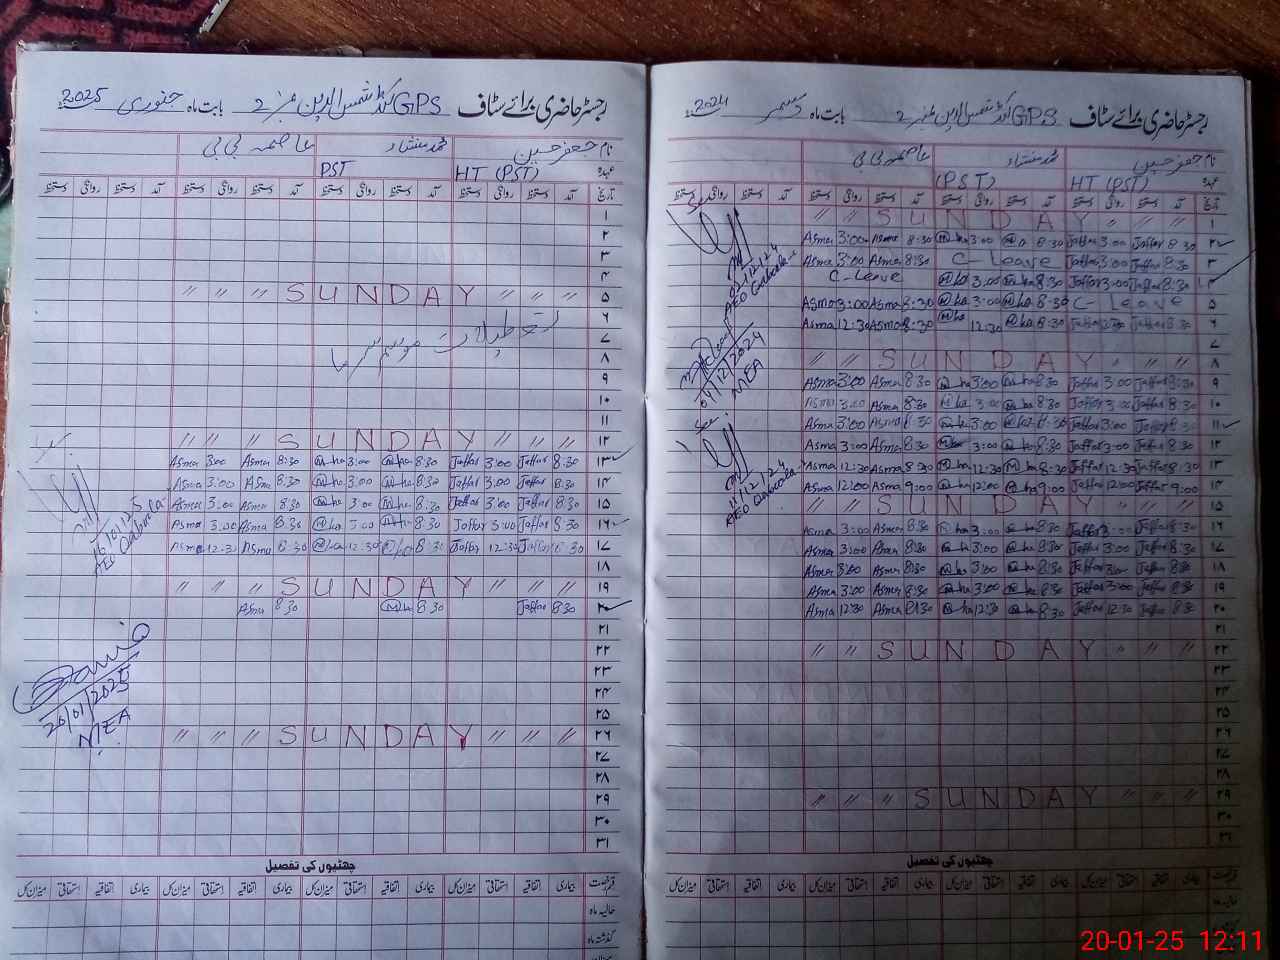 رجسٹر حاضری برائے سٹاف GPS شمس الدین نمبر 2 بابت ماہ دسمبر 2024
نام جعفر حسین عاصمہ بی بی
عہدہ HT (PST) (PST)
تاریخ آمد دستخط روانگی دستخط آمد دستخط روانگی دستخط آمد دستخط روانگی دستخط آمد دستخط روانگی دستخط
۱ // // SUNDAY // // //
۲ Jaffar 8:30 Jaffar 3:00 8:30 3:00 Asma 8:30 Asma 3:00
۳ Jaffar 8:30 Jaffar 3:00 C-Leave Asma 8:30 Asma 3:00
۴ Jaffar 8:30 Jaffar 3:00 8:30 3:00 C-Leave
۵ C-Leave 8:30 3:00 Asma 8:30 Asma 3:00
۶ Jaffar 8:30 Jaffar 8:30 12:30 Asma 8:30 Asma 12:30
۷
۸ // // SUNDAY // // //
۹ Jaffar 8:30 Jaffar 3:00 8:30 3:00 Asma 8:30 Asma 3:00
۱۰ Jaffar 8:30 Jaffar 3:00 8:30 3:00 Asma 8:30 Asma 3:00
۱۱ Jaffar 8:30 Jaffar 3:00 8:30 3:00 Asma 8:30 Asma 3:00
۱۲ Jaffar 8:30 Jaffar 3:00 8:30 3:00 Asma 8:30 Asma 3:00
۱۳ Jaffar 8:30 Jaffar 12:30 8:30 12:30 Asma 8:30 Asma 12:30
۱۴ Jaffar 9:00 Jaffar 12:00 9:00 12:00 Asma 9:00 Asma 12:00
۱۵ // // SUNDAY // // //
۱۶ Jaffar 8:30 Jaffar 3:00 8:30 3:00 Asma 8:30 Asma 3:00
۱۷ Jaffar 8:30 Jaffar 3:00 8:30 3:00 Asma 8:30 Asma 3:00
۱۸ Jaffar 8:30 Jaffar 3:00 8:30 3:00 Asma 8:30 Asma 3:00
۱۹ Jaffar 8:30 Jaffar 3:00 8:30 3:00 Asma 8:30 Asma 3:00
۲۰ Jaffar 8:30 Jaffar 12:30 8:30 12:30 Asma 8:30 Asma 12:30
۲۱
۲۲ // // SUNDAY // // //
۲۳
۲۴
۲۵
۲۶
۲۷
۲۸
۲۹ // // // SUNDAY // // //
۳۰
۳۱
See
02/12/24
AEO
04/12/2024
MEA
See
11/12/24
AEO
چھٹیوں کی تفصیل
قسم رخصت بیماری اتفاقیہ استحقاقی میزان کل بیماری اتفاقیہ استحقاقی میزان کل بیماری اتفاقیہ استحقاقی میزان کل بیماری اتفاقیہ استحقاقی میزان کل
حالیہ ماہ
گذشتہ ماہ
رجسٹر حاضری برائے سٹاف GPS شمس الدین نمبر 2 بابت ماہ جنوری 2025
نام جعفر حسین عاصمہ بی بی
عہدہ HT (PST) PST
تاریخ آمد دستخط روانگی دستخط آمد دستخط روانگی دستخط آمد دستخط روانگی دستخط آمد دستخط روانگی دستخط
۱
۲
۳
۴
۵ // // // SUNDAY // // //
۶ تعطیلات موسم سرما
۷
۸
۹
۱۰
۱۱
۱۲ // // // SUNDAY // // //
۱۳ Jaffar 8:30 Jaffar 3:00 8:30 3:00 Asma 8:30 Asma 3:00
۱۴ Jaffar 8:30 Jaffar 3:00 8:30 3:00 Asma 8:30 Asma 3:00
۱۵ Jaffar 8:30 Jaffar 3:00 8:30 3:00 Asma 8:30 Asma 3:00
۱۶ Jaffar 8:30 Jaffar 3:00 8:30 3:00 Asma 8:30 Asma 3:00
۱۷ Jaffar 8:30 Jaffar 12:30 8:30 12:30 Asma 8:30 Asma 12:30
۱۸
۱۹ // // // SUNDAY // // //
۲۰ Jaffar 8:30 8:30 Asma 8:30
۲۱
۲۲
۲۳
۲۴
۲۵
۲۶ // // // SUNDAY // // //
۲۷
۲۸
۲۹
۳۰
۳۱
16/01/25
AEO
20/01/2025
MEA
چھٹیوں کی تفصیل
قسم رخصت بیماری اتفاقیہ استحقاقی میزان کل بیماری اتفاقیہ استحقاقی میزان کل بیماری اتفاقیہ استحقاقی میزان کل بیماری اتفاقیہ استحقاقی میزان کل
حالیہ ماہ
گذشتہ ماہ
20-01-25 12:11